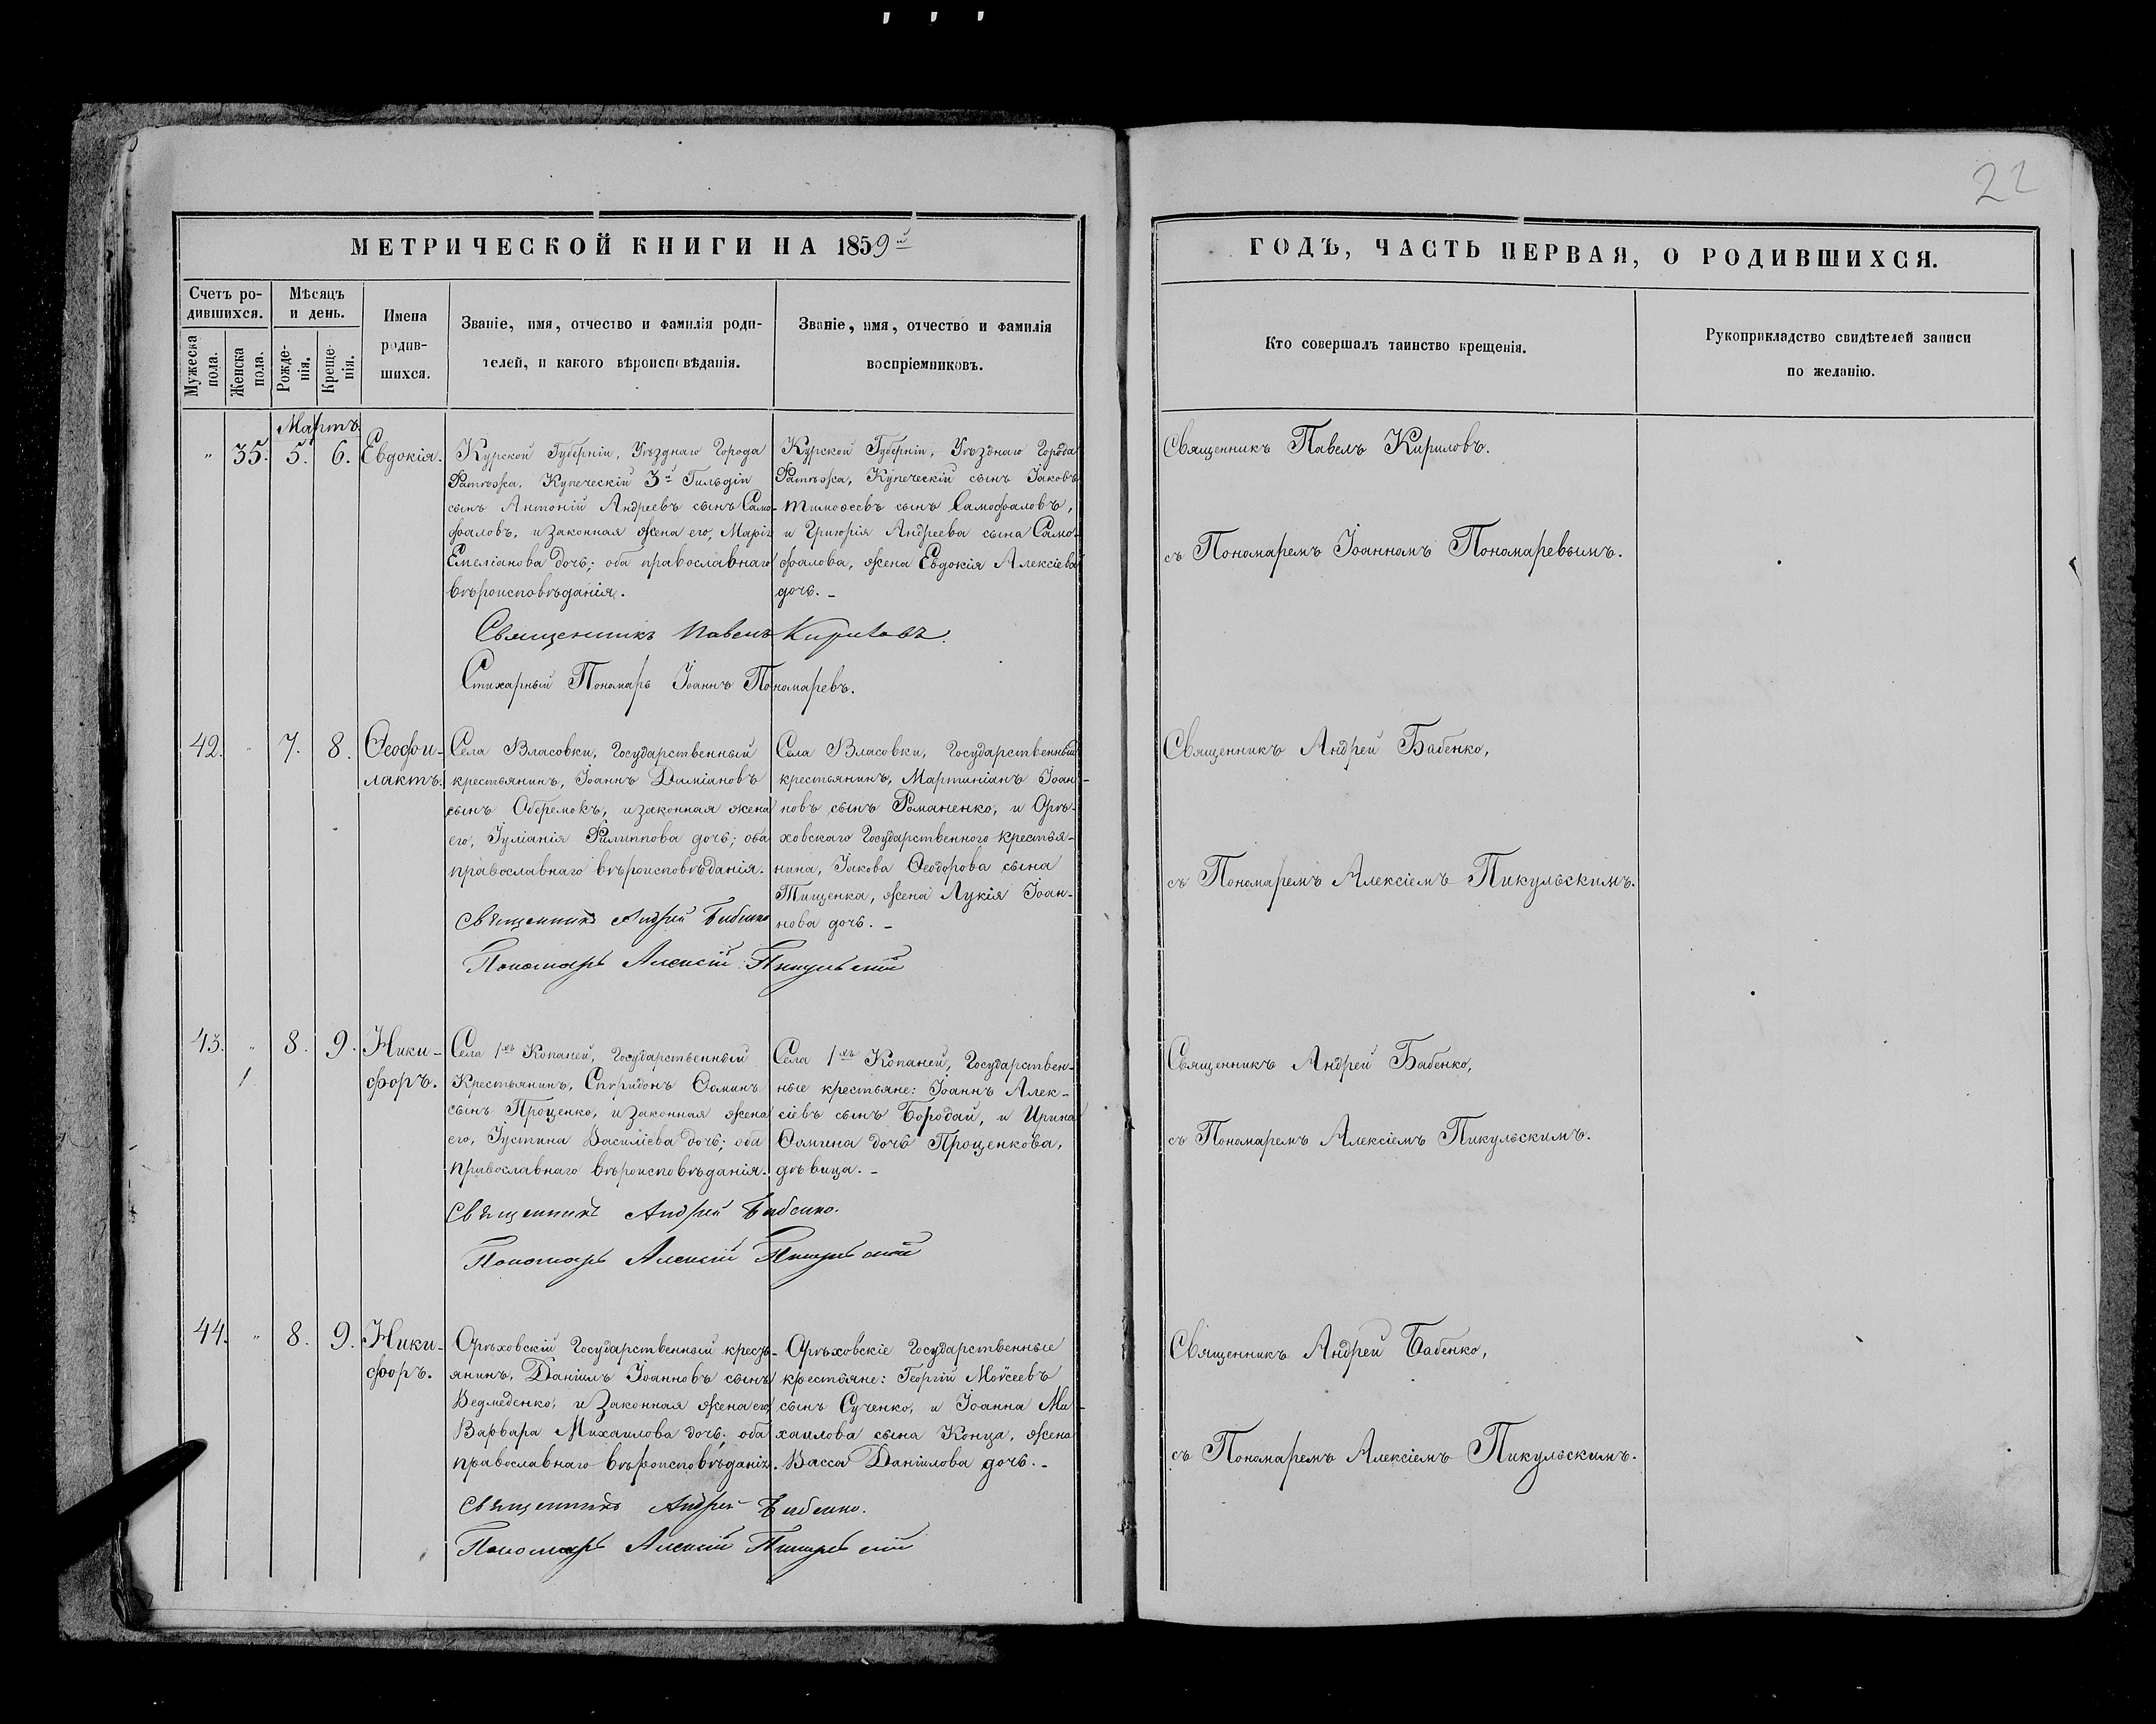 22
МЕТРИЧЕСКОЙ КНИГИ НА 1859й
ГОДЪ, ЧАСТЬ ПЕРВАЯ, О РОДИВШИХСЯ.
Счетъ ро-
дившихся.
Мѣсяцъ
и день.
Мужеска
пола.
Женска
пола.
Рожде-
нія.
Креще-
нія.
Имена
родив-
шихся.
Званіе, имя, отчество и фамилія роди-
телей, и какого вѣроисповѣданія.
Званіе, имя, отчество и фамилія
воспріемниковъ.
Кто совершалъ таинство крещенія.
Рукоприкладство свидѣтелей записи
по желанію.
Мартъ
" 35. 5. 6. Евдокія.
Курской Губерніи, Уѣзднаго Города
Ратѣжа, Купеческій 3й Гильдіи
сынъ Антоній Андреевъ сынъ Само-
фаловъ, и законная жена его, Марія
Емеліанова дочь; оба православнаго
вѣроисповѣданія.
Курской Губерніи, Уѣзднаго Города
Ратѣжа, Купеческій сынъ Іаковъ
Тимоѳеевъ сынъ Самофаловъ,
и Григорія Андреева сына Само-
фалова, жена Евдокія Алексіева
дочь. -
Священникъ Павелъ Кириловъ.
Стихарный Пономарь Іоаннъ Пономаревъ.
Священникъ Павелъ Кириловъ.
съ Пономаремъ Іоанномъ Пономаревымъ.
42. " 7. 8. Ѳеофи-
лактъ.
Села Власовки, Государственный
крестьянинъ, Іоаннъ Даміановъ
сынъ Оберемокъ, и законная жена
его, Іуліанія Филиппова дочь; оба
православнаго вѣроисповѣданія.
Села Власовки, Государственный
крестьянинъ, Мартиніанъ Іоан-
новъ сынъ Романенко, и Орѣ-
ховскаго Государственного крестья-
нина, Іакова Ѳеодорова сына
Тищенка, жена Лукія Іоан-
нова дочь. -
Священникъ Андрей Бабенко
Пономарь Алексій Пикульскій
Священникъ Андрей Бабенко,
съ Пономаремъ Алексіемъ Пикульскимъ.
43. " 8. 9. Ники-
форъ.
Села 1хъ Копаней, Государственный
Крестьянинъ, Спиридонъ Ѳоминъ
сынъ Проценко, и законная жена
его, Іустина Василіева дочь; оба
православнаго вѣроисповѣданія.
Села 1хъ Копаней, Государствен-
ные крестьяне: Іоаннъ Алек-
сіевъ сынъ Бородай, и Ирина
Ѳомина дочь Проценкова,
дѣвица. -
Священникъ Андрей Бабенко.
Пономарь Алексій Пикульскій
Священникъ Андрей Бабенко,
съ Пономаремъ Алексіемъ Пикульскимъ.
44. " 8. 9. Ники-
форъ.
Орѣховскій Государственный крестья-
янинъ, Даніилъ Іоанновъ сынъ
Ведмеденко, и Законная жена его,
Варвара Михаилова дочь; оба
православнаго вѣроисповѣданія.
Орѣховскіе Государственные
крестьяне: Георгій Моѵсеевъ
сынъ Сученко, и Іоанна Ми-
хаилова сына Конца, жена
Васса Даніилова дочь. -
Священникъ Андрей Бабенко.
Пономарь Алексій Пикульскій
Священникъ Андрей Бабенко,
съ Пономаремъ Алексіемъ Пикульскимъ.